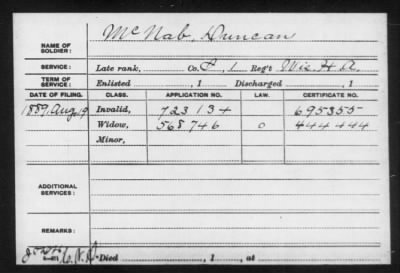 NAME OF SOLDIER: McNab, Duncan
SERVICE: Late rank, Co. 1 Reg't Wis. H A.
TERM OF SERVICE: Enlisted , 1 Discharged , 1
DATE OF FILING. CLASS. APPLICATION NO. LAW. CERTIFICATE NO.
1889, Aug. 19 Invalid, 723134 695355
Widow, 568746 444444
Minor,
ADDITIONAL SERVICES:
REMARKS:
Died , 1 , at